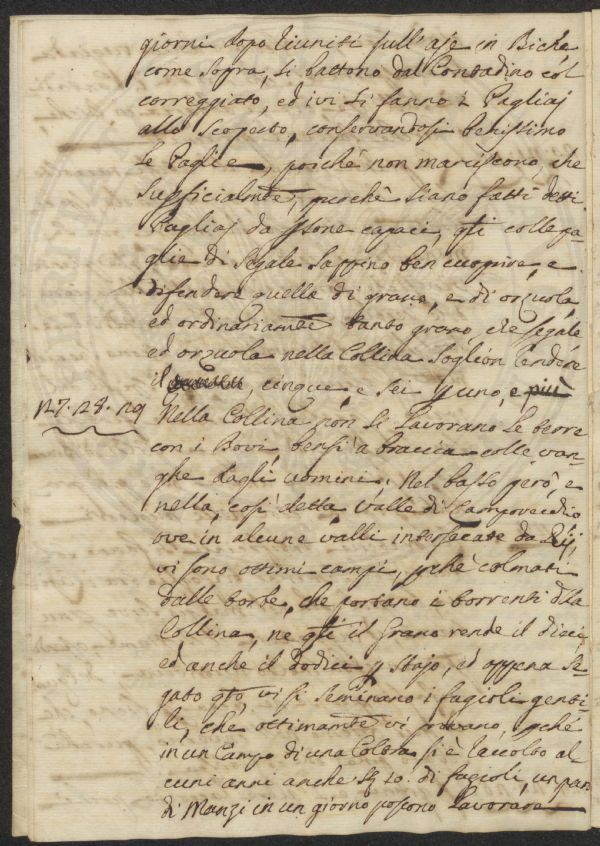 giorni dopo riuniti sull'aje in Biche
come sopra, si battono dal Contadino col
correggiato, ed ivi si fanno i Pagliaj
allo scoperto, conservandosi benissimo
le Paglie, poichè non marciscono, che
superficialmte, purchè siano fatti detti
Pagliaj da psone capaci, qli colle pa-
glie di Segale sappino ben cuoprire, e
difendere quelle di grano, e di orzuola,
ed ordinariamte tanto grano, che segale
ed orzuola nella Collina soglion rendere
il cinque, e sei p uno, e più
127. 128. 129 Nella Collina non si lavorano le terre
con i Bovi, bensì a braccia colle van-
ghe dagli uomini; Nel basso però, e
nella così detta Valle di Campovecchio
ove in alcune valli intersecate da
vi sono ottimi campi, pchè colmati
dalle torbe, che portano i torrenti dlla
Collina, ne qli il Grano rende il dieci,
ed anche il dodici p stajo, ed appena se-
gato qto, vi si seminano i fagioli genti-
li, che ottimamte vi provano, pchè
in un Campo di una Coltra si è raccolto al-
cuni anni anche 10. di fagioli, un par
di Manzi in un giorno possono lavorare